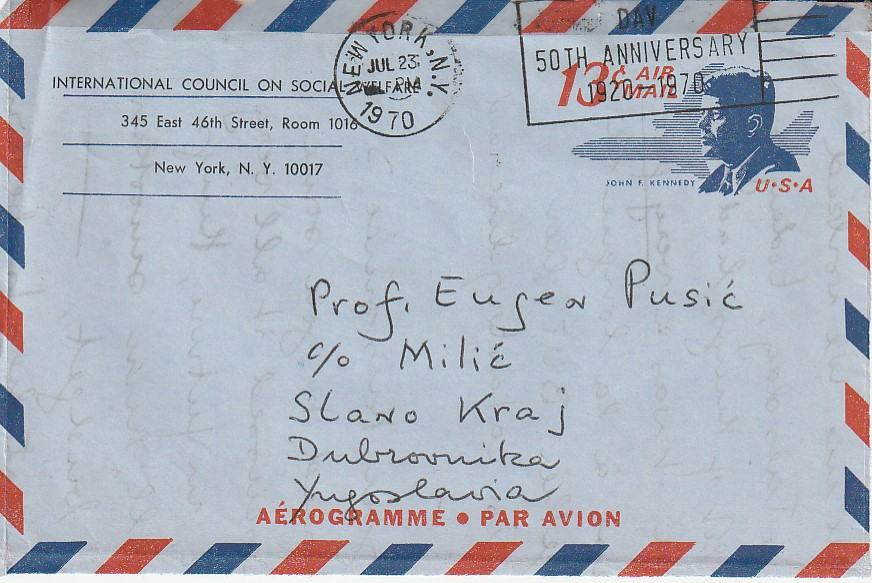 DAV
50TH ANNIVERSARY
1920-1970
NEW YORK, N.Y.
JUL 23
PM
1970
13¢ AIR
MAIL
INTERNATIONAL COUNCIL ON SOCIAL WELFARE
345 East 46th Street, Room 1016
New York, N. Y. 10017
JOHN F. KENNEDY
U•S•A
Prof. Eugen Pusić
c/o Milić
Slano Kraj
Dubrovnika
Yugoslavia
AÉROGRAMME • PAR AVION